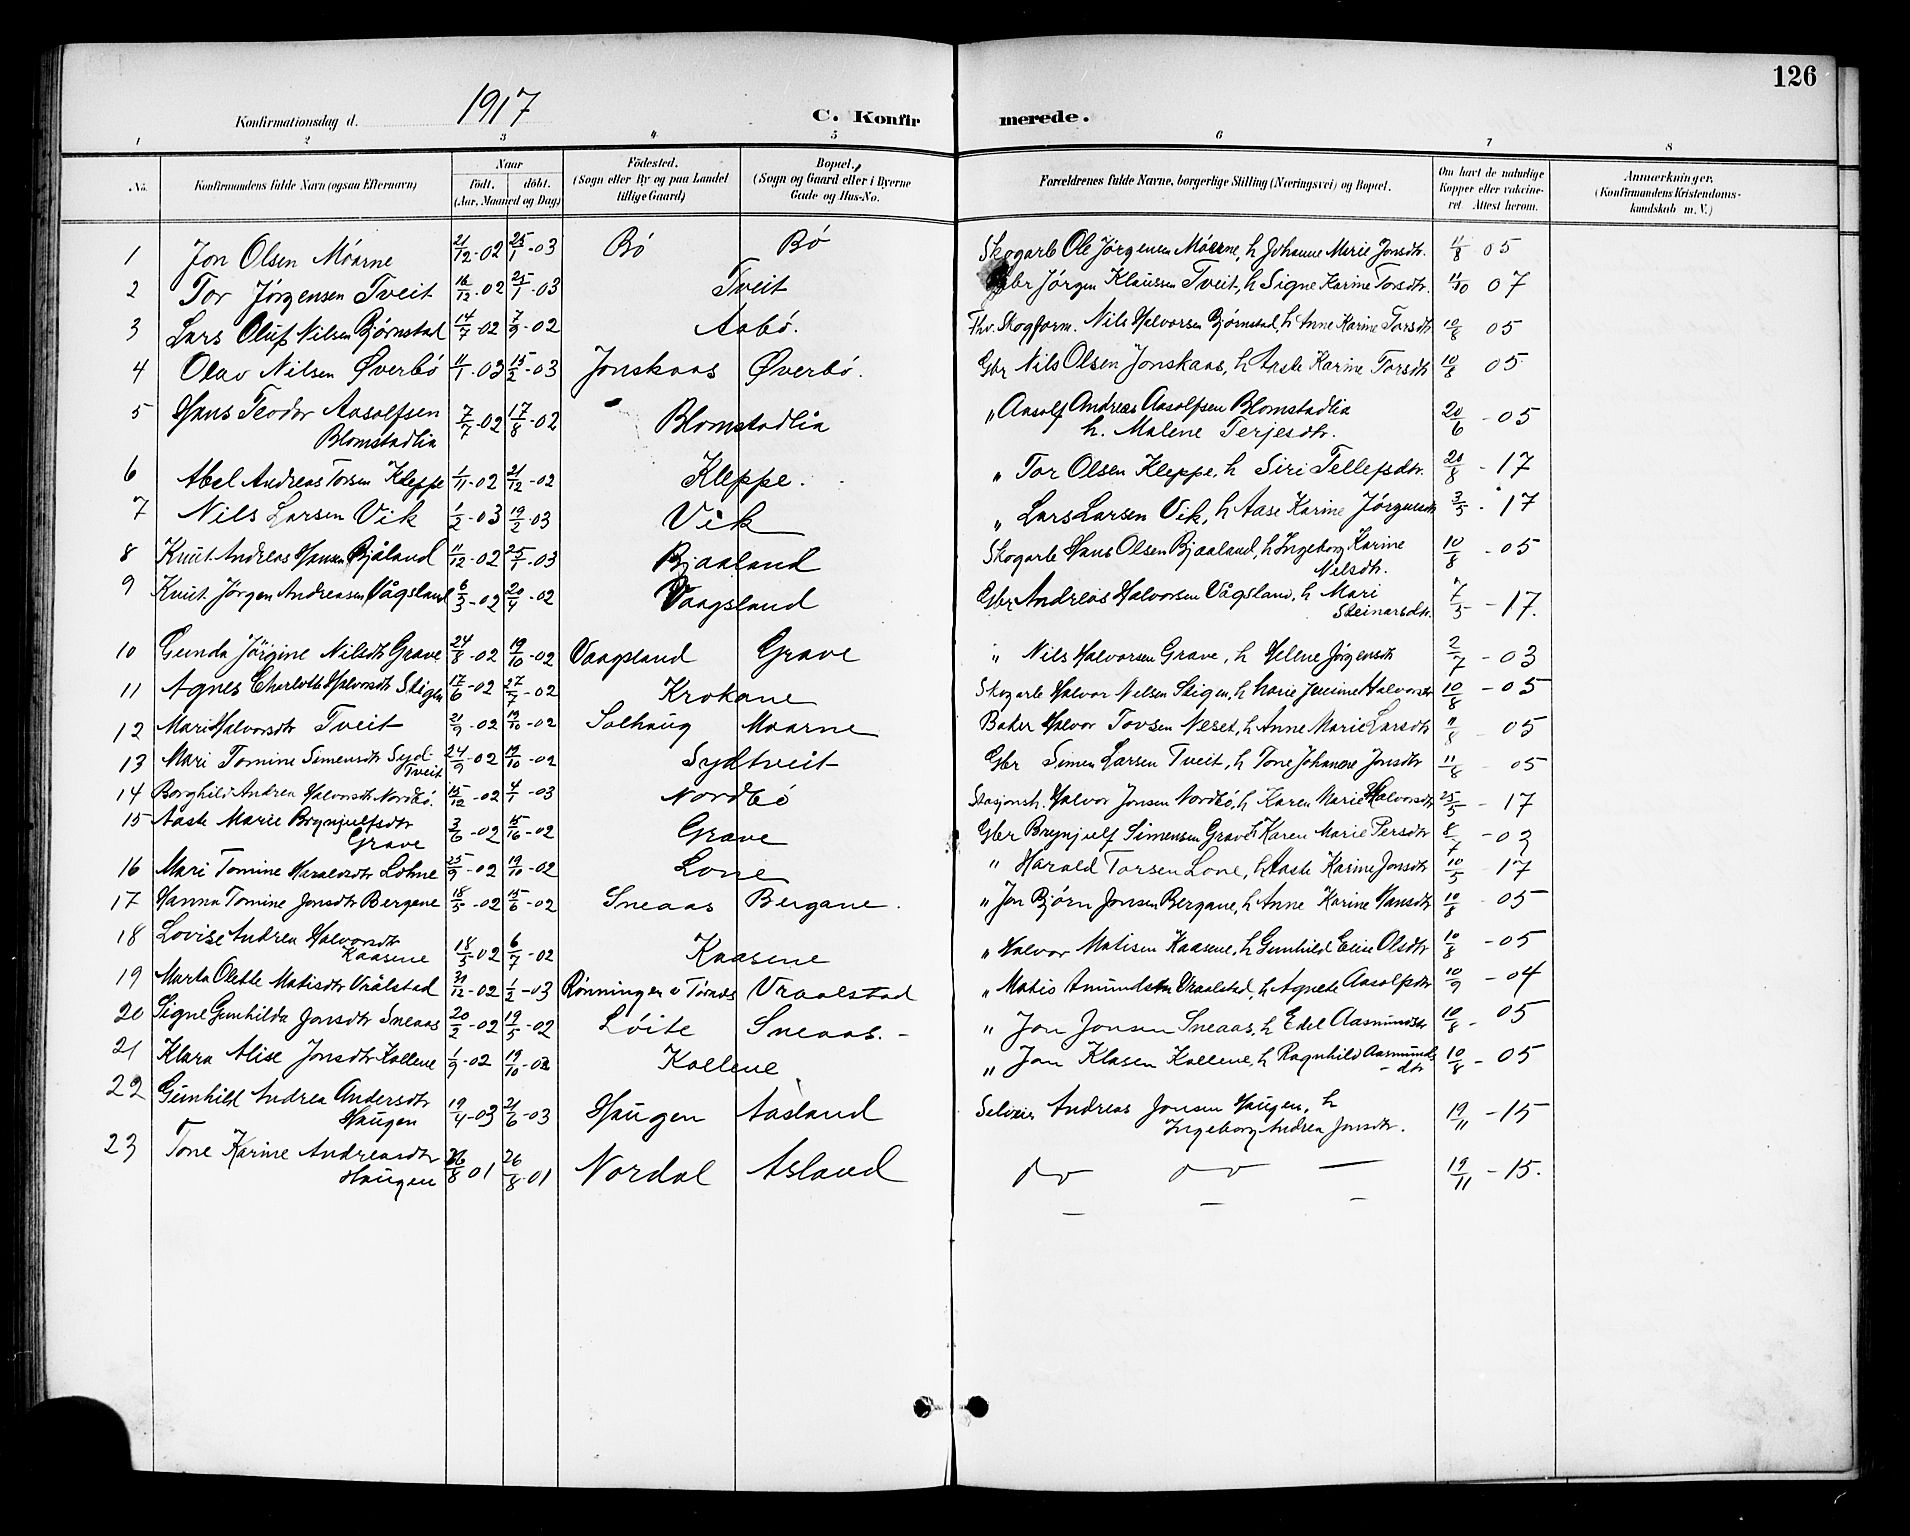 126
Konfirmationsdag d. 1917 C. Konfirmerede.
1 2 3 4 5 6 7 8
No. Konfirmandens fulde Navn (ogsaa Efternavn) Naar födt. döbt. (Aar, Maaned og Dag) Födested. (Sogn eller By og paa Landet tillige Gaard) Bopæl. (Sogn og Gaard eller i Byerne Gade og Hus-No. Forældrenes fulde Navne, borgerlige Stilling (Næringsvei) og Bopæl. Om havt de naturlige Kopper eller vaccineret. Attest herom. Anmærkninger. (Konfirmandens Kristendomskundskab m. V.)
1 Jon Olsen Móarne 21/12-02 25/1-03 Bó Bó Skogarb Ole Jörgensen Móarne, h Johanne Marie Jonsdtr. 11/8 05
2 Tor Jörgensen Tveit 16/12-02 25/1-03 Tveit Gbr Jörgen Klaussen Tveit, h Signe Karine Torsdtr. 11/10 07
3 Lars Oluf Nilsen Bjørnstad 14/7-02 7/9-02 Aabó. Fhv. Skogform. Nils Halvorsen Bjørnstad, h Anne Karine Torsdtr 10/8 05
4 Olav Nilsen Øverbó 11/1-03 15/2-03 Jonskaas Øverbó. Gbr Nils Olsen Jonskaas, h Aaste Karine Torsdtr 10/8 05
5 Hans Teodor Aasolfsen Blomstadlia 7/7-02 17/8-02 Blomstadlia " Aasolf Andreas Aasolfsen Blomstadlia
h. Malene Terjesdtr. 20/6-05
6 Abel Andreas Torsen Kleppe 1/11-02 21/12-02 Kleppe. " Tor Olsen Kleppe, h Siri Tellefsdtr. 20/8-17
7 Nils Larsen Vik 1/2-03 19/2-03 Vik " Lars Larsen Vik, h Aase Karine Jörgensdtr 3/5-17
8 Knut Andreas Hansen Bjåland 11/12-02 25/1-03 Bjaaland Skogarb Hans Olsen Bjaaland, h Ingeborg Karine
Nilsdtr. 10/8-05
9 Knut Jörgen Andreasen Vågsland 6/3-02 20/4-02 Vaagsland Gbr Andreas Halvorsen Vågsland, h Mari
Steinarsdtr. 7/5-17.
10 Gunda Jörgine Nilsdtr Grave 24/8-02 19/10-02 Vaagsland Grave " Nils Halvorsen Grave, h Helene Jörgensdtr 2/7-03
11 Agnes Charlotte Halvorsdtr Stigen 17/6-02 27/7-02 Krokane Skogarb Halvor Nilsen Stigen, h Marie Halvorsdtr 10/8-05
12 Mari Halvorsdtr Tveit 21/9-02 19/10-02 Solhaug Moarne Baker Halvor Tovsen Neset, h Anne Marie Larsdtr 11/8 05
13 Mari Tomine Simensdtr Syd-
Tveit 24/9-02 19/10-02 Sydtveit Gbr Simen Larsen Tveit, h Tone Johanne Jonsdtr 11/8-05
14 Borghild Andrea Halvorsdtr Nordbó. 15/12-02 4/1-03 Nordbó Stasjonsh. Halvor Jonsen Nordbó, h Karen Marie Halvorsdtr 25/5-17
15 Aaste Marie Brynjulfsdtr
Grave 3/6-02 15/6-02 Grave Gbr Brynjulf Simensen Grave h Karen Marie Persdtr 8/7-03
16 Mari Tomine Haraldsdtr Lohne 25/9-02 19/10-02 Lone " Harald Torsen Lone, h Aaste Karine Jonsdtr 10/5-17
17 Hanna Tomine Jonsdtr Bergene 18/5-02 15/6-02 Sneaas Bergane. " Jon Bjørn Jonsen Bergane, h Anne Karine Hansdtr 10/8 05
18 Lovise Andrea Halvorsdtr
Kaasene 18/5-02 6/7-02 Kaasene " Halvor Matisen Kaasene, h Gunhild Eline Olsdtr 10/8-05
19 Marta Olette Matisdtr Vrålstad 31/12-02 1/2-03 Rønningen Vraalstad " Matis Amundsen Vraalstad, h Agnete Aasolfsdtr 10/9-04
20 Signe Gunhilda Jonsdtr Sneaas 20/2-02 19/5-02 Lóite Sneaas.- " Jon Jonsen Sneaas, h Edel Aasmundsdtr 10/8-05
21 Klara Alise Jonsdtr Kollene 1/9-02 19/10-02 Kollene " Jon Klasen Kollene, h Ragnhild Aasmunds-
dtr 10/8-05
22 Gunhild Andrea Andersdtr
Haugen 19/4-03 21/6-03 Haugen Aasland Selveier Andreas Jonsen Haugen, h
Ingeborg Andrea Jonsdtr. 19/11-15
23 Tone Karine Andreasdtr
Haugen 26/8 01 26/8-01 Nordal Asland do do — 19/11-15.